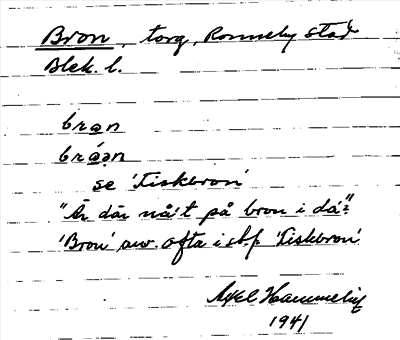 Bron, torg, Ronneby stad
Blek. l.
bron
bróən
se 'Fiskbron'
"Är där nå't på bron i da'?"
'Bron' anv. ofta i st.f. 'Fiskbron'
Axel Hammelin
1941